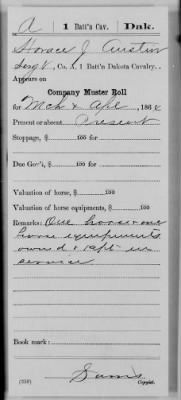 A 1 Batt'n Cav. Dak.
Horace J. Austin
Serg't, Co. A, 1 Batt'n Dakota Cavalry.
Appears on
Company Muster Roll
for Mch & Apl, 186
Present or absent Present
Stoppage, $ 100 for
Due Gov't, $ 100 for
Valuation of horse, $ 100
Valuation of horse equipments, $ 100
Remarks: One horse & one
horse equipments
owned & kept in
service
Book mark:
Copyist.